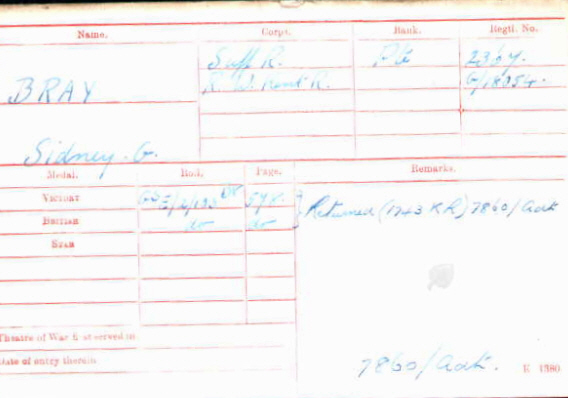 Name. Corps. Rank. Regtl. No.
BRAY Suff R. Pte 2367.
R. W. Kent R. G/18054.
Sidney. G.
Medal. Roll. Page. Remarks.
Victory 578. Returned (1743 KR) 7860/Adt
British do do
Star
Theatre of War first served in
Date of entry therein
7860/Adt. K 1380